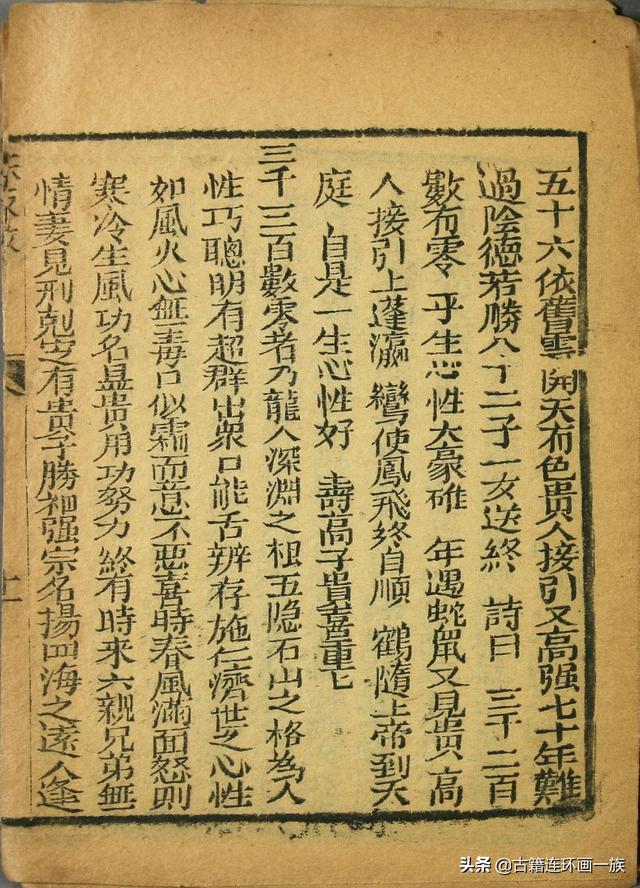 五十六依舊雲開天有色貴人接引又高强七十年難
過陰德若勝八十二子一女送終 詩曰 三千二百
數有零 乎生心性大豪雄 年遇蛇鼠又見貴 高
人接引上蓬瀛 鸞使鳳飛終自順 鶴隨上帝到天
庭 自是一生心性好 壽高子貴喜重七
三千三百數零者乃龍人深淵之相五隐石山之格為人
性巧聰明有超群出衆口能舌辨存施仁濟世之心性
如風火心無毒口似霜而意不惡喜時春風滿面怒則
寒冷生風功名显貴用功努力終有時來六親兄弟無
情妻見刑剋定有貴子勝祖强宗名揚四海之遠人逢
上
头条 @古籍连环画一族